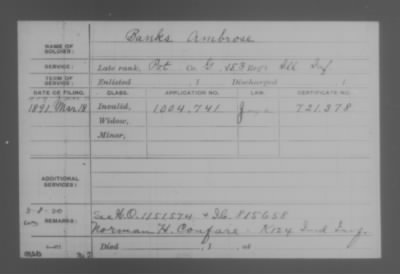 NAME OF SOLDIER: Banks Ambrose
SERVICE: Late rank, Pvt Co. G, 153 Reg't Ill Inf
TERM OF SERVICE: Enlisted , 1 Discharged , 1
DATE OF FILING. CLASS. APPLICATION NO. LAW. CERTIFICATE NO.
1891 Mar 18 Invalid, 1004,741 721,378
Widow,
Minor,
ADDITIONAL SERVICES:
REMARKS: See W.O. 1151574 + I.C. 815658
Norman H. Confare - K124 Ind Inf.
Died , at